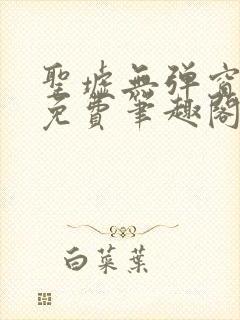 聖墟無弹窗
免費筆趣閣
白菜葉